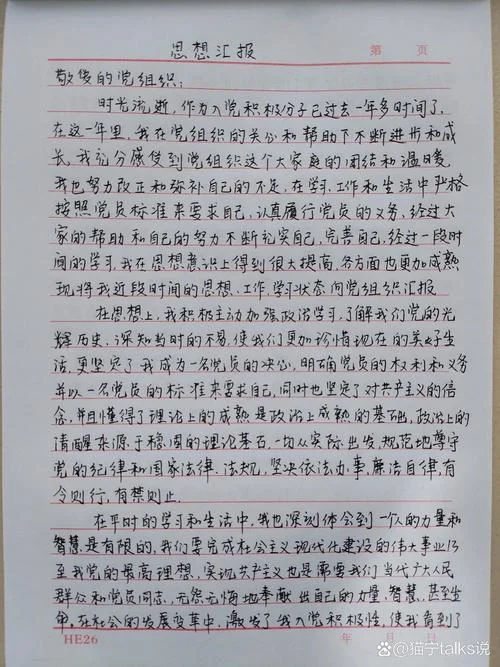 思想汇报
第 页
敬爱的党组织:
时光流逝,作为入党积极分子已过去一年多时间了,
在这一年里,我在党组织的关心和帮助下不断进步和成
长,我充分感受到党组织这个大家庭的团结和温暖,
我也努力改正和弥补自己的不足,在学习、工作和生活中严格
按照党员标准来要求自己,认真履行党员的义务,经过大
家的帮助和自己的努力不断充实自己,完善自己,经过一段时
间的学习,我在思想意识上得到很大提高,各方面也更加成熟
现将我近段时间的思想、工作、学习状态向党组织汇报
在思想上,我积极主动加强政治学习,了解我们党的光
辉历史,深知当时的不易,使我们更加珍惜现在的美好生
活,更坚定了我成为一名党员的决心,明确党员的权利和义务
并以一名党员的标准来要求自己,同时也坚定了对共产主义的信
念,并且懂得了理论上的成熟是政治上成熟的基础,政治上的
清醒来源于稳固的理论基石,一切从实际出发,规范地遵守
党的纪律和国家法律、法规,坚决依法办事,廉洁自律,有
令则行,有禁则止.
在平时的学习和生活中,我也深刻体会到一个人的力量和
智慧是有限的,我们要完成社会主义现代化建设的伟大事业乃
至我党的最高理想,实现共产主义也是需要我们当代广大人民
群众和党员同志,无怨无悔地奉献出自己的力量、智慧,甚至生
命,在社会的发展变革中,激发了我入党积极性,使我看到了
HE26
年 月 日
@猫宁talks说